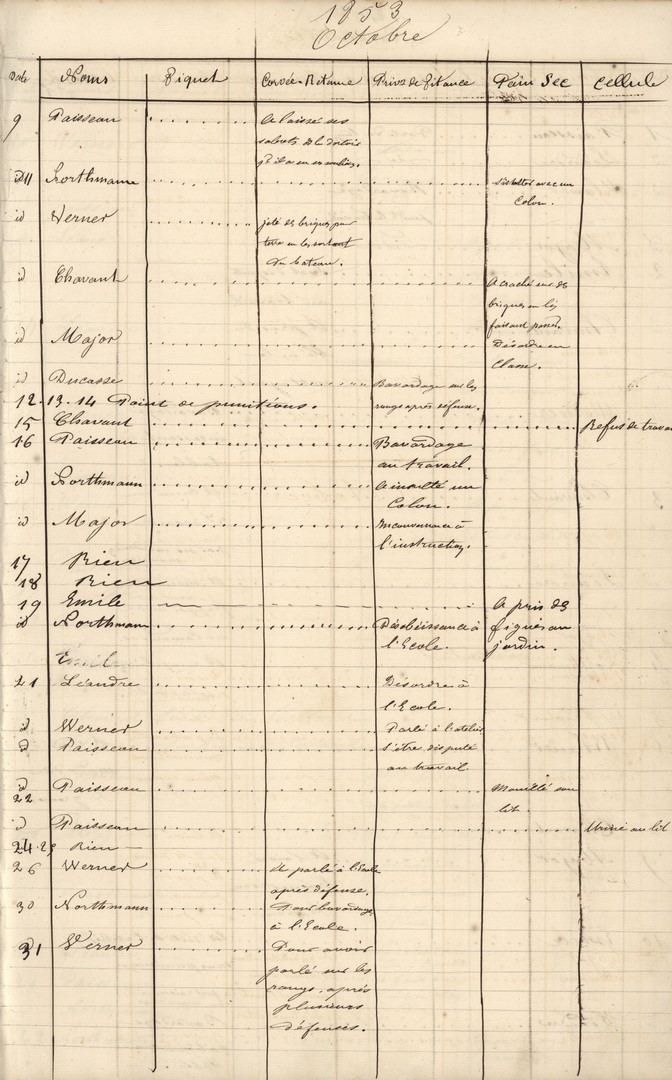 1853
Octobre
Date Noms Piquet Corvée-Retenue Privé de Pitance Pain Sec Cellule
9 Paisseau A laissé ses
sabots de dortoir
id 11 Northmann S'est battu avec un
Colon.
id Werner jeté des briques par
terre en les sortant
du bateau.
id Chavant A craché sur des
briques en les
faisant passer.
id Major Désordre en
Classe.
id Ducasse Bavardage sur les
rangs après défense.
12-13-14 Point de punitions.
15 Chavant Refus de travail
16 Paisseau Bavardage
au travail.
id Northmann A insulté un
Colon.
id Major Inconvenance à
l'instruction.
17 Rien
18 Rien
19 Emile A pris des
figues au
jardin.
id Northmann Désobéissance à
l'Ecole.
Emile
21 Léandre Désordre à
l'Ecole.
id Werner Parlé à l'atelier
id Paisseau S'être disputé
au travail.
id Paisseau Mouillé son
lit.
22
id Paisseau Uriné au lit
24.25 Rien
26 Werner A parlé à l'Ecole
après défense.
30 Northmann Pour bavardage
à l'Ecole.
31 Werner Pour avoir
parlé sur les
rangs, après
plusieurs
défenses.